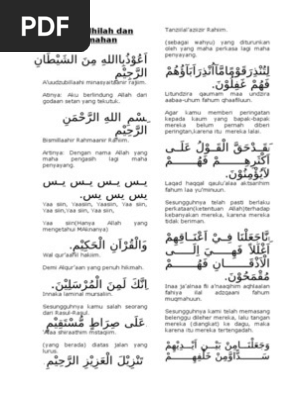 PDF
hilah dan
mahan
اَعُوْذُبِاللهِ مِنَ الشَّيْطَانِ
الرَّجِيْمِ
A'uudzubillaahi minasyaithaanir rajiim.
Artinya: Aku berlindung Allah dari
godaan setan yang tekutuk.
بِسْمِ اللهِ الرَّحْمَنِ
الرَّحِيْمِ
Bismillaahir Rahmaanir Rahiim.
Artinya: Dengan nama Allah yang
maha pengasih lagi maha
penyayang.
يــس يــس يــس يــس
يس يس يس.
Yaa siin, Yaasiin, Yaasiin, Yaa siin,
Yaa siin,Yaa siin, Yaa siin,
Yaa siin(Hanya Allah yang
mengetahui MAknanya)
وَالْقُرْاَنِ الْحَكِيْمِ.
Wal qur'aanil hakiim.
Demi Alqur'aan yang penuh hikmah.
اِنَّكَ لَمِنَ الْمُرْسَلِيْنَ.
Innaka laminal mursaliin.
Sesungguhnya kamu salah seorang
dari Rasul-Rasul.
عَلَى صِرَاطٍ مُّسْتَقِيْمٍ
'Alaa shiraathim mstaqiim.
(yang berada) diatas jalan yang
lurus.
تَنْزِيْلَ الْعَزِيْزِ الرَّحِيْمِ
Tanziilal'aziizir Rahiim.
(sebagai wahyu) yang diturunkan
oleh yang maha perkasa lagi maha
penyayang.
لِتُنْذِرَقَوْمًامَّااُنْذِرَاَبَآؤُهُمْ
فَهُمْ غٰفِلُوْنَ.
Litundzira qaumam maa undzira
aabaa-uhum fahum ghaafiluun.
Agar kamu memberi peringatan
kepada kaum yang bapak-bapak
mereka belum pernah diberi
peringtan,karena itu mereka lalai.
لَقَدْحَقَّ الْقَوْلُ عَلَى
اَكْثَرِهِمْ فَهُمْ
لاَيُؤْمِنُوْنَ.
Laqad haqqal qaulu'alaa aktsarihim
fahum laa yu'minuun.
Sesungguhnya telah pasti berlaku
perkataan(ketentuan Allah)terhadap
kebanyakan mereka, karena mereka
tidak beriman.
اِنَّاجَعَلْنَا فِيْ اَعْنَاقِهِمْ
اَغْلٰلاً فَهِيَ اِلَى
الْاَذْقَانِ فَهُمْ
مُقْمَحُوْنَ.
Innaa ja'alnaa fii a'naaqihim aghlaalan
fahiya ilal adzqaani fahum
muqmahuun.
Sesungguhnya kami telah memasang
belenggu dileher mereka, lalu tangan
mereka (diangkat) ke dagu, maka
karena itu mereka tertengadah.
وَجَعَلْنَامِنْ بَيْنِ اَيْدِيْهِمْ
سَدًّاوَّمِنْ خَلْفِهِمْ